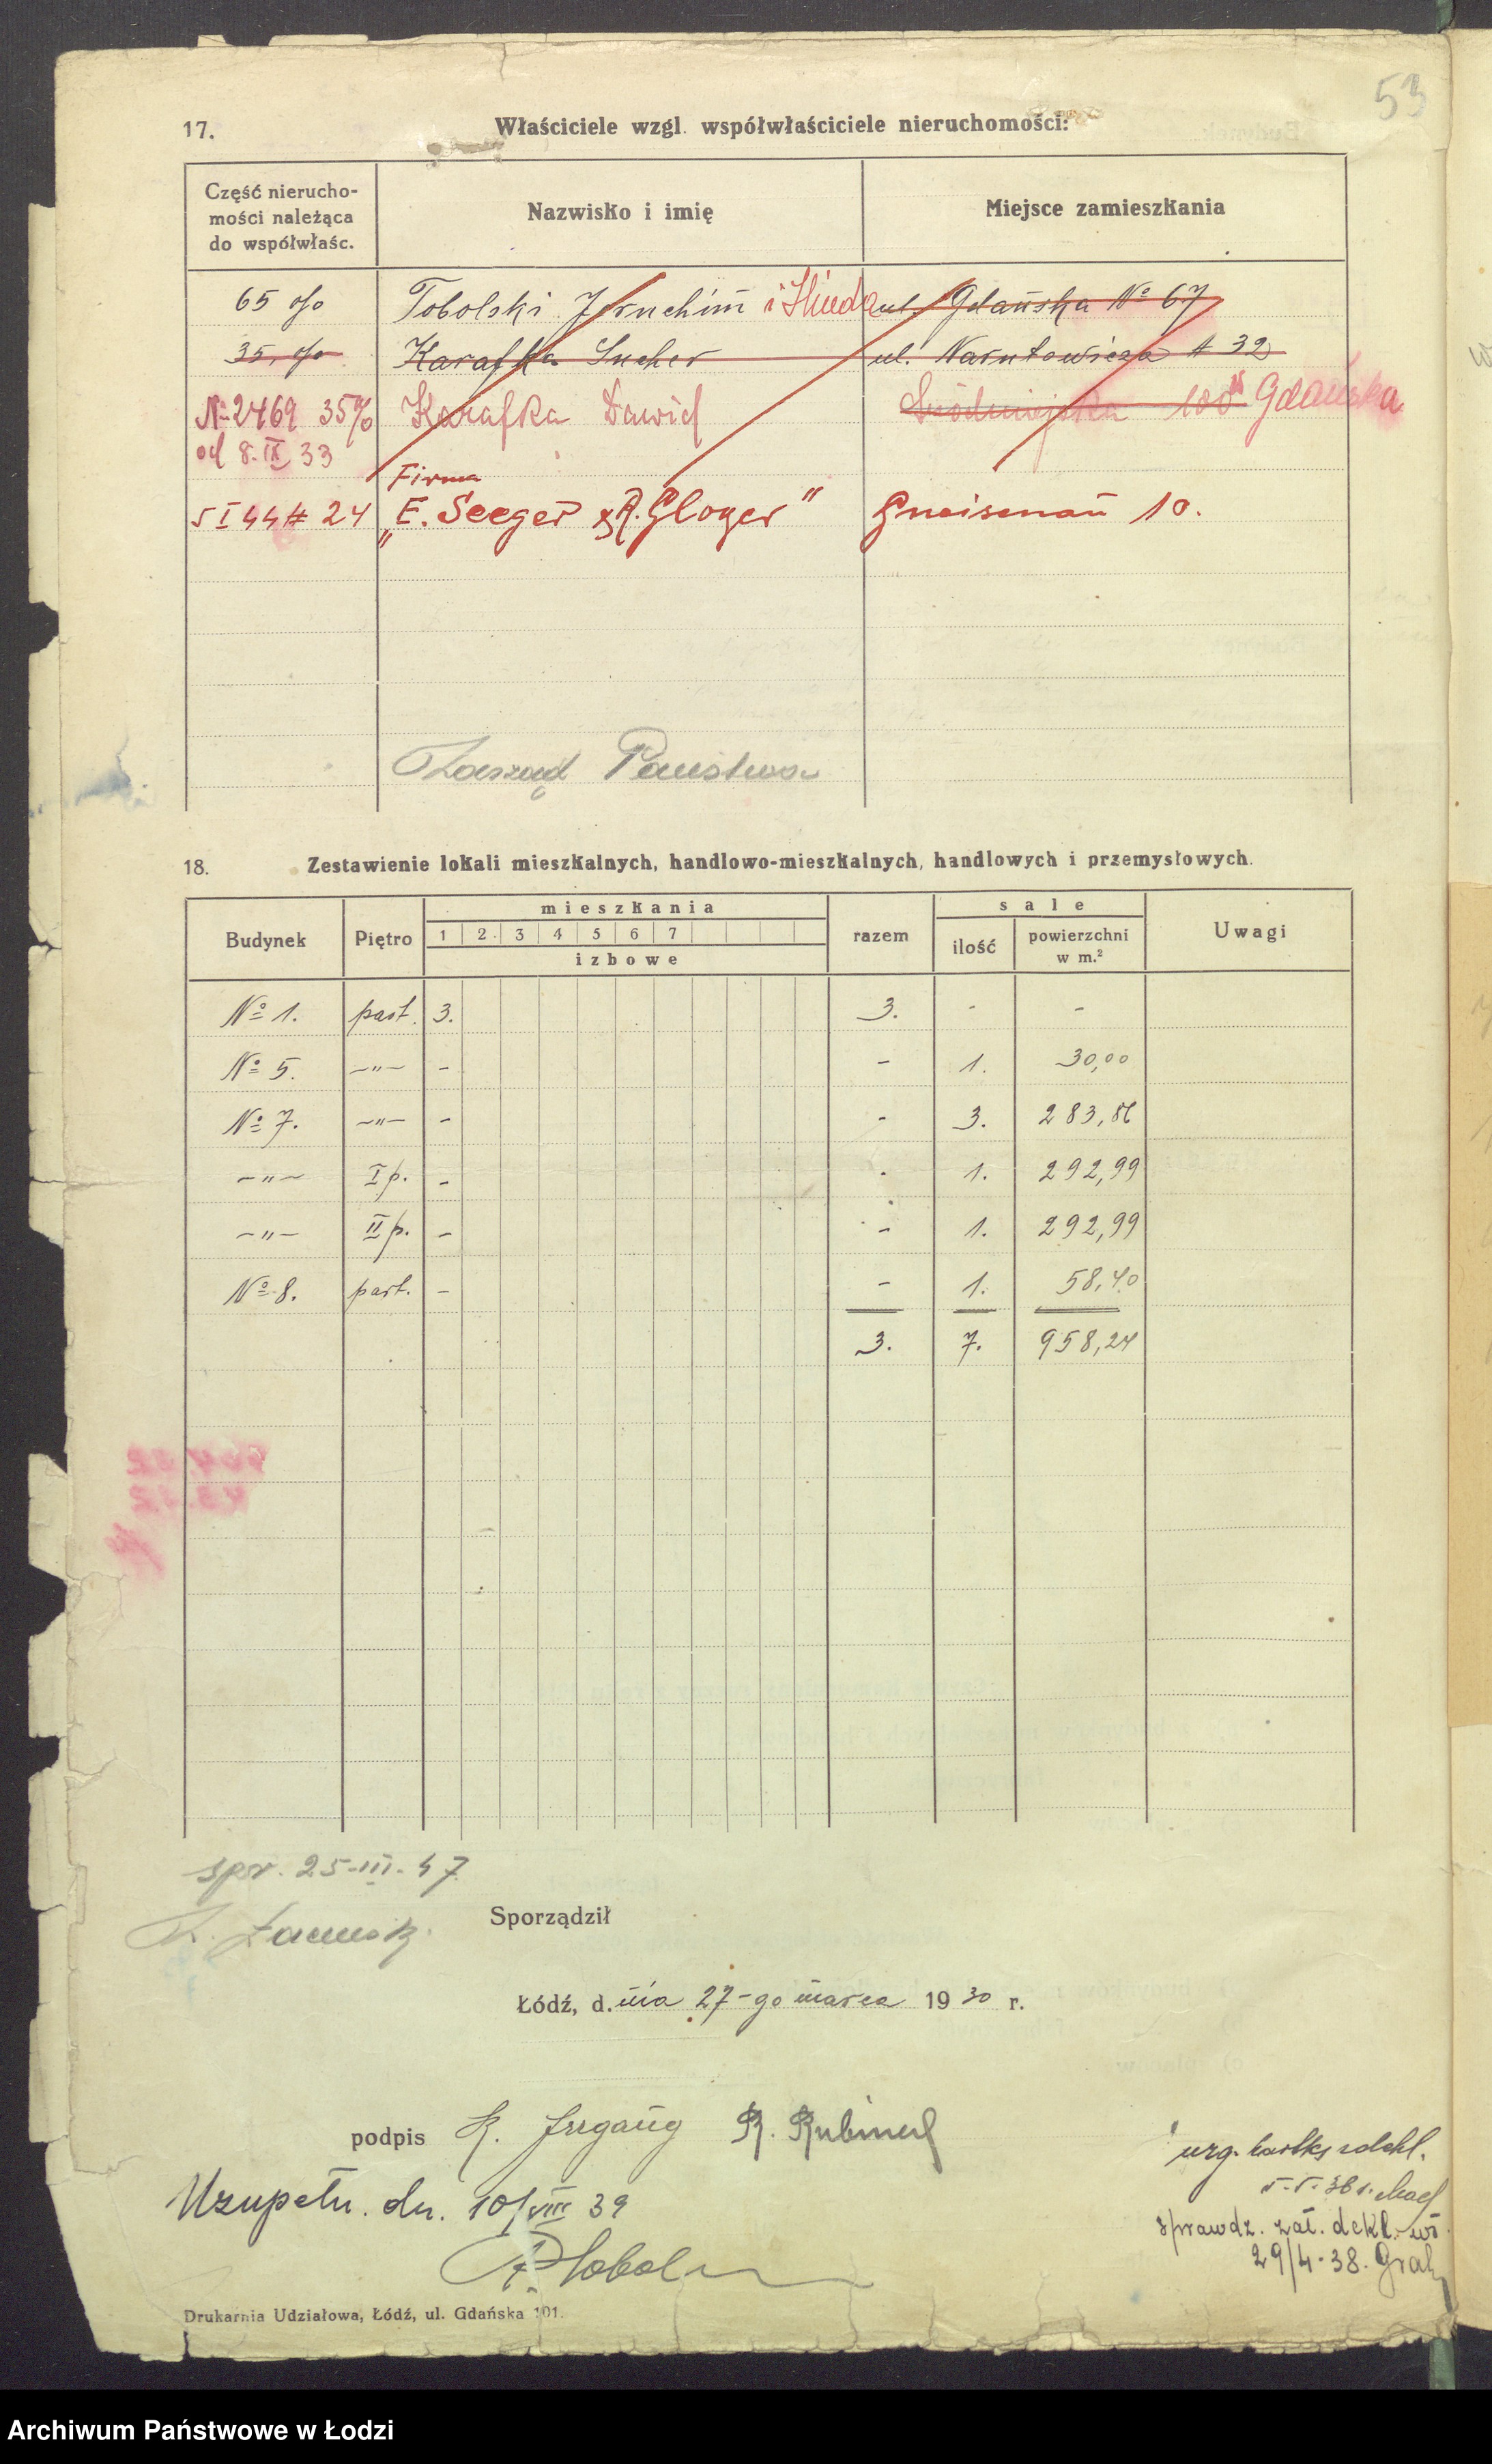 53
17. Właściciele wzgl. współwłaściciele nieruchomości:
Część nierucho-
mości należąca
do współwłaśc.
Nazwisko i imię
Miejsce zamieszkania
65 % Tobolski Jeruchim i Hinda ul. Gdańska № 67
35, % Karafka Sucher ul. Narutowicza # 32
№ 2469 35% Karafka Dawid Śródmiejska 100 Gdańska
od 8. IX 33
Firma
5 I 44 # 24 „E. Seeger & R. Gloger” Gneisenau 10.
Zarząd Państwa
18. Zestawienie lokali mieszkalnych, handlowo-mieszkalnych, handlowych i przemysłowych.
Budynek Piętro mieszkania razem sale Uwagi
1 2 3 4 5 6 7
izbowe
ilość powierzchni
w m.²
№ 1. part. 3. 3. - -
№ 5. -"- - - 1. 30,00
№ 7. -"- - - 3. 283,86
-"- I p. - - 1. 292,99
-"- II p. - - 1. 292,99
№ 8. part. - - 1. 58,40
3. 7. 958,24
spr. 25-III-47
Sporządził
Łódź, d.nia 27-go marca 1930 r.
podpis K. Irrgang R.
Uzupełn. dn. 10/VIII 39
sprawdz. zał. dekl. wł.
29/4-38.
Drukarnia Udziałowa, Łódź, ul. Gdańska 101.
Archiwum Państwowe w Łodzi